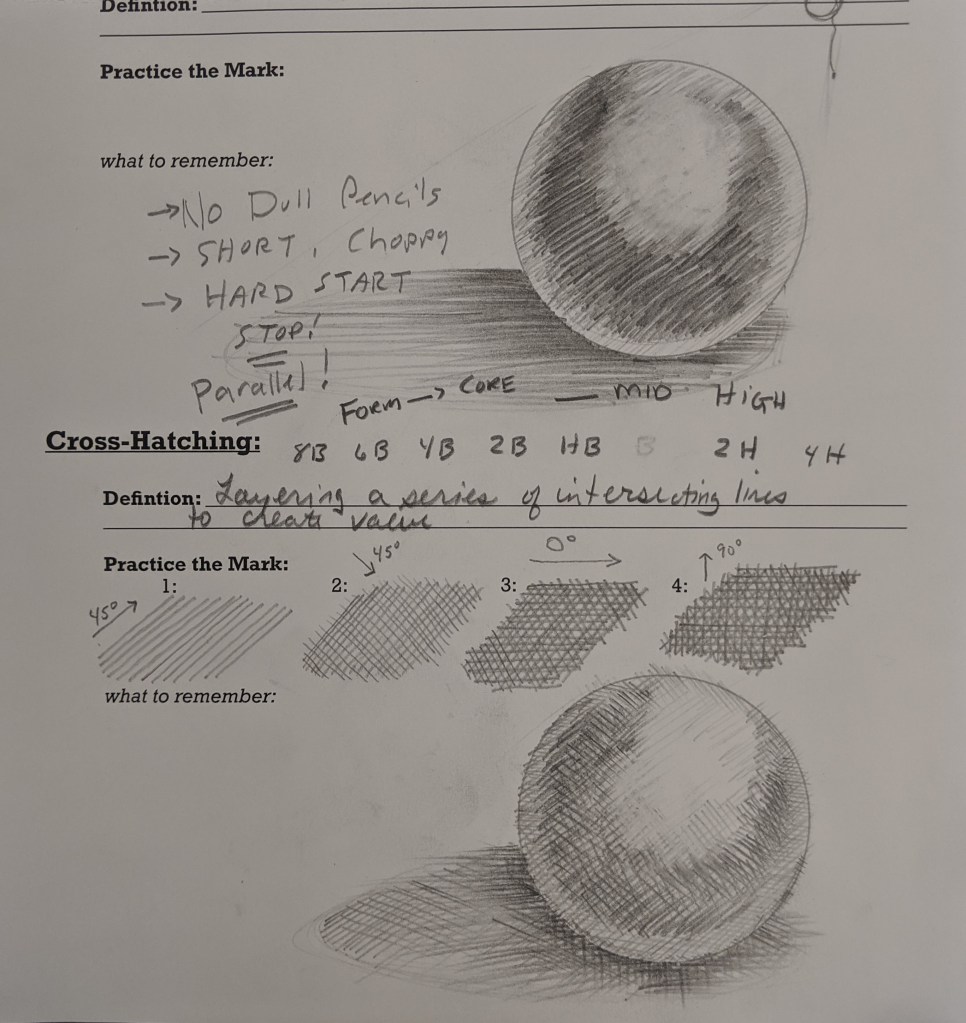 Defintion:
Practice the Mark:
what to remember:
→No Dull Pencils
→ SHORT, Choppy
→ HARD START
STOP!
Parallel!
FORM → CORE — MID HIGH
Cross-Hatching:
8B 6B 4B 2B HB B 2H 4H
Defintion: Layering a series of intersecting lines
to create value
Practice the Mark:
1: 2: 3: 4:
45° 45° 0° 90°
what to remember: